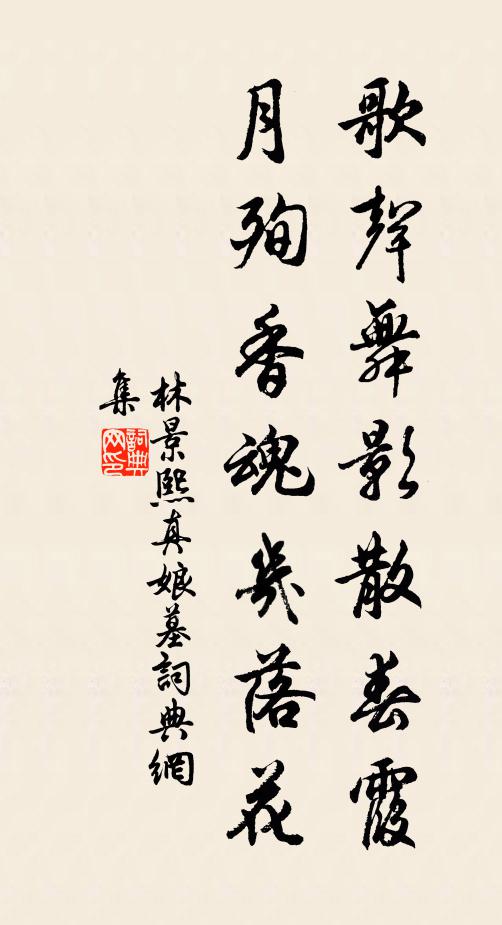 歌聲舞影散春霞
月殉香魂幾落花
林景熙真娘墓詞典網
集
詞典网印